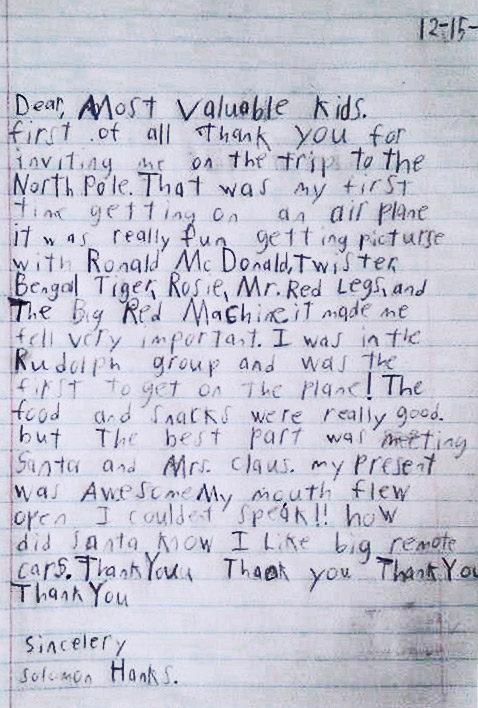 12-15-
Dear, Most Valuable Kids.
first of all thank you for
inviting me on the trip to the
North Pole. That was my first
time getting on an air plane
it was really fun getting picturse
with Ronald McDonald, Twister,
Bengal Tiger, Rosie, Mr. Red Legs, and
The Big Red Machine. it made me
fell very important. I was in the
Rudolph group and was the
first to get on the plane! The
food and snacks were really good.
but The best part was meeting
Santa and Mrs. Claus. my present
was Awesome My mouth flew
open I couldet speak!! how
did Santa know I Like big remote
cars. Thank You Thank you Thank You
Thank You
Sincelery
Solomon Hanks.